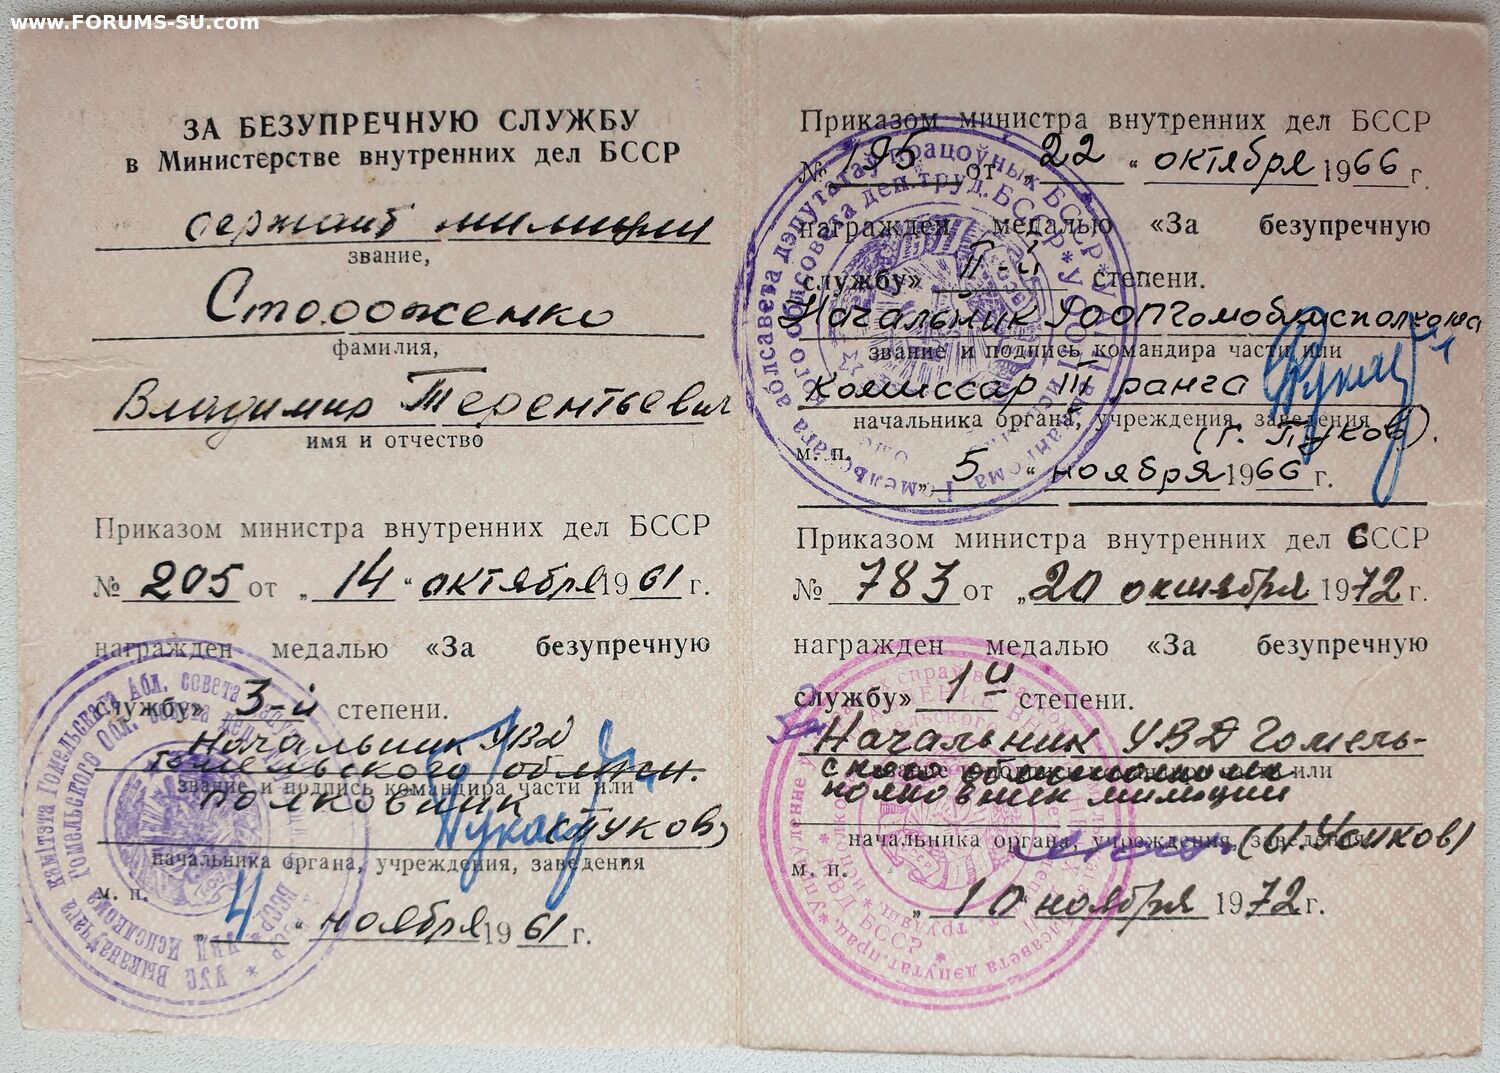 www.FORUMS-SU.com
ЗА БЕЗУПРЕЧНУЮ СЛУЖБУ
в Министерстве внутренних дел БССР
сержант милиции
звание,
Стороженко
фамилия,
Владимир Терентьевич
имя и отчество
Приказом министра внутренних дел БССР
№ 205 от „14“ октября 1961 г.
награжден медалью «За безупречную
службу» 3-й степени.
Начальник УВД
Гомельского облисп.
звание и подпись командира части или
полковник (Пуков)
начальника органа, учреждения, заведения
м. п.
„4“ ноября 1961 г.
Приказом министра внутренних дел БССР
№ 195 от „22“ октября 1966 г.
награжден медалью «За безупречную
службу» II-й степени.
Начальник УООП Гомоблисполкома
звание и подпись командира части или
комиссар III ранга
начальника органа, учреждения, заведения
(Г. Пуков).
м. п.
„5“ ноября 1966 г.
Приказом министра внутренних дел БССР
№ 783 от „20 октября 1972 г.
награжден медалью «За безупречную
службу» 1й степени.
Начальник УВД Гомель-
ского облисполкома
звание и подпись командира части или
полковник милиции
начальника органа, учреждения, заведения (И. Усиков)
м. п.
„10 ноября 1972 г.